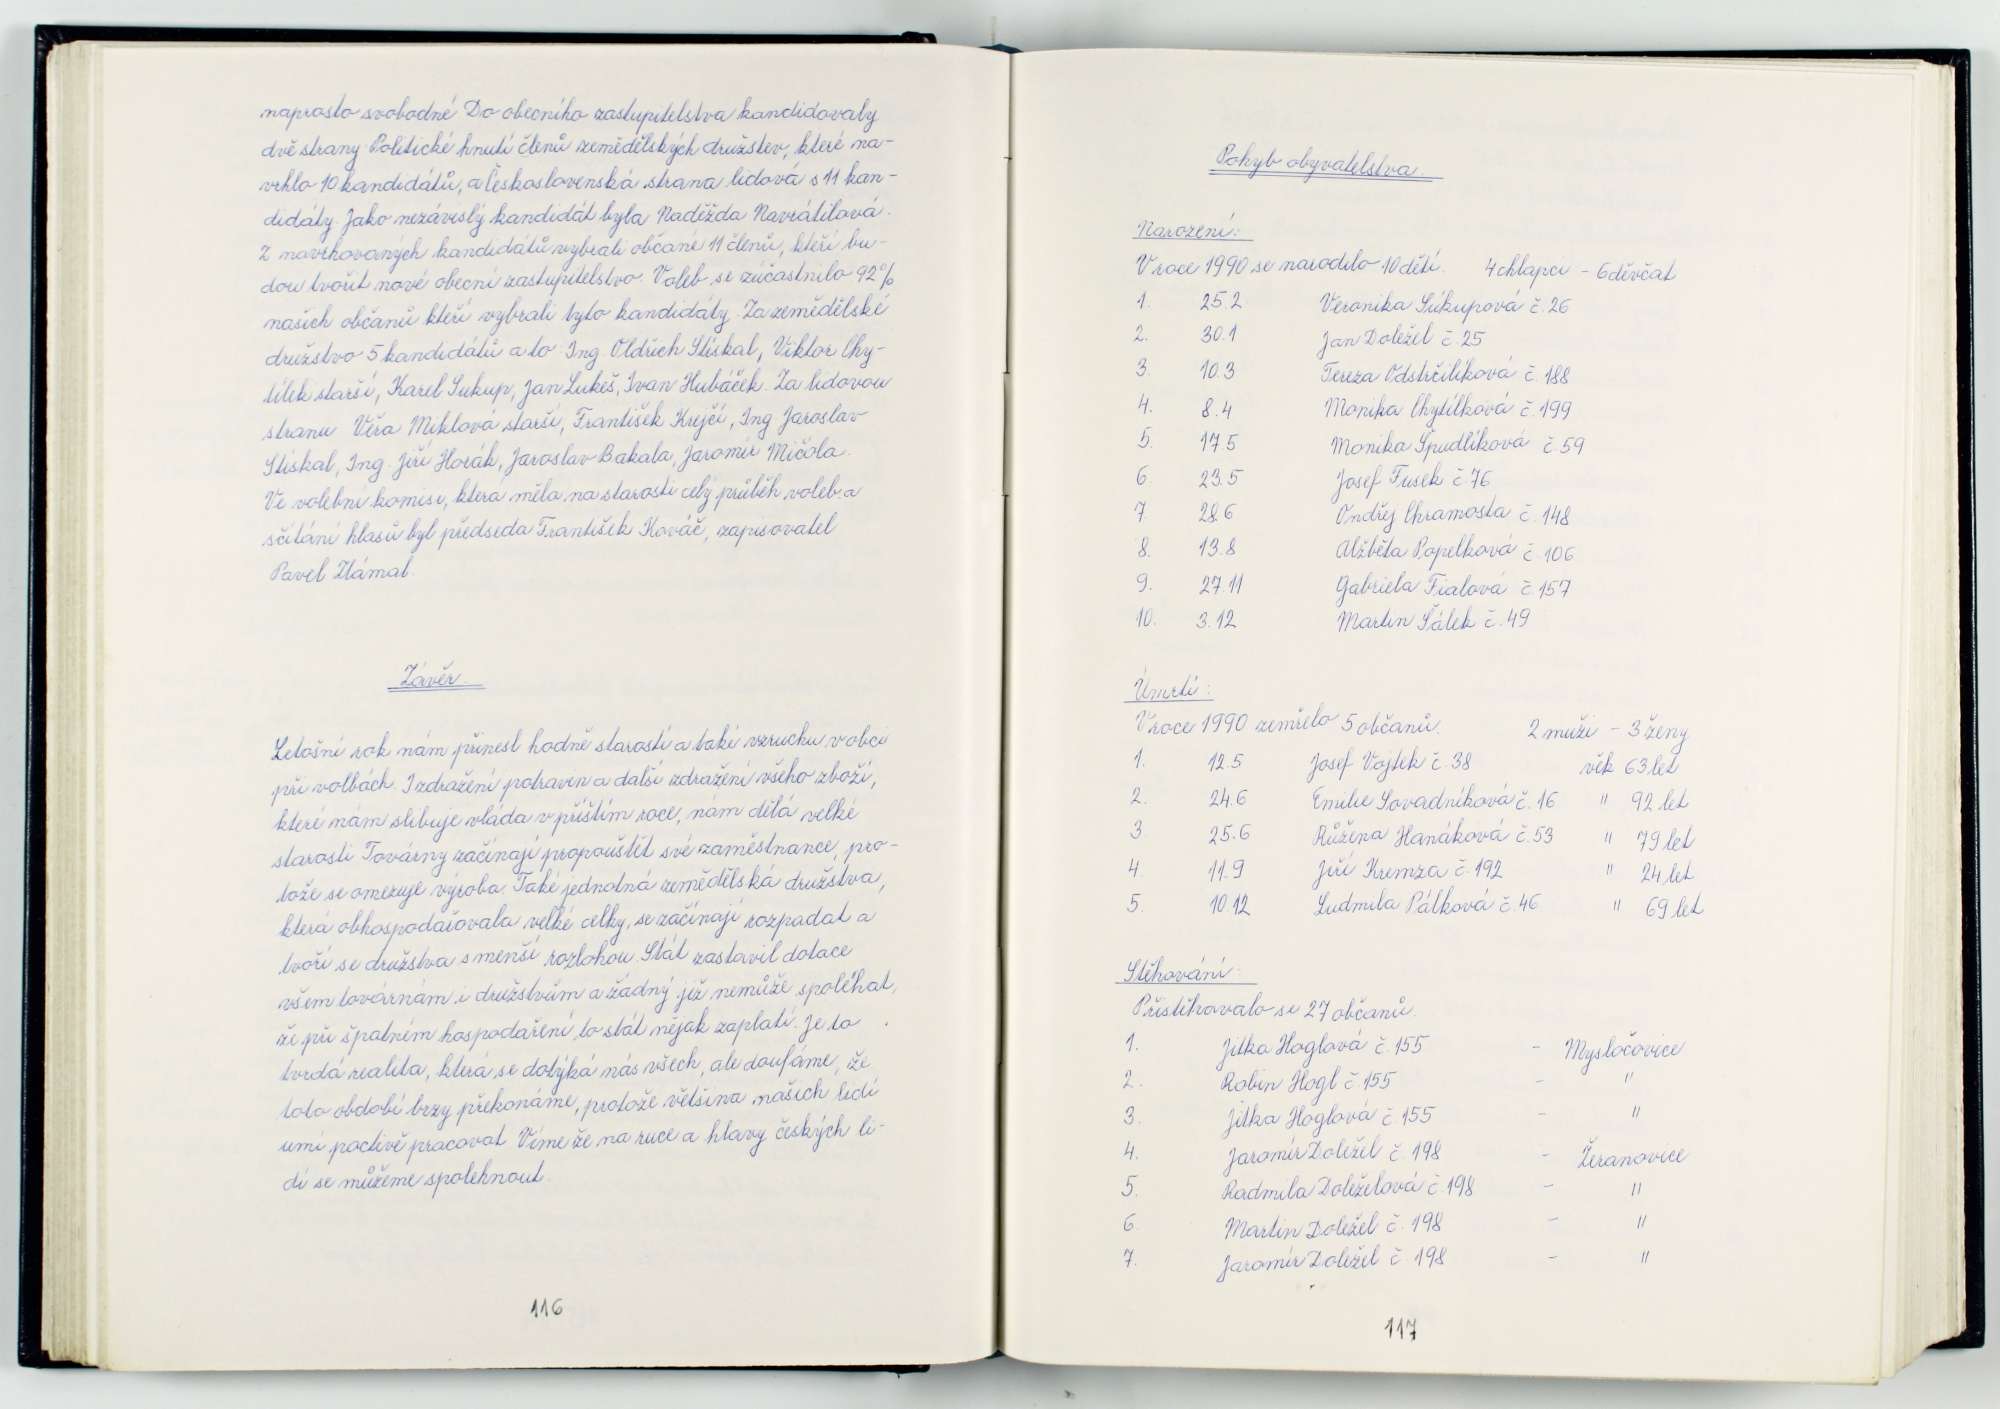 naprosto svobodné Do obecního zastupitelstva kandidovaly
dvě strany Politické hnutí členů zemědělských družstev, které na-
vrhlo 10 kandidátů, a Československá strana lidová s 11 kan-
didáty. Jako nezávislý kandidát byla Naděžda Navrátilová.
Z navrhovaných kandidátů vybrali občané 11 členů, kteří bu-
dou tvořit nové obecní zastupitelstvo. Voleb se zúčastnilo 92%
našich občanů kteří vybrali tyto kandidáty. Za zemědělské
družstvo 5 kandidátů a to: Ing. Oldřich Stískal, Viktor Chy-
tílek starší, Karel Sukup, Jan Lukeš, Ivan Hubáček. Za lidovou
stranu Věra Miklová starší, František Krejčí, Ing Jaroslav
Stískal, Ing. Jiří Horák, Jaroslav Bakala, Jaromír Mičola.
Ve volební komisi, která měla na starosti celý průběh voleb a
sčítání hlasů byl předseda František Kováč, zapisovatel
Pavel Zlámal.
Závěr.
Letošní rok nám přinesl hodně starostí a také vzruchu v obci
při volbách. I zdražení potravin a další zdražení všeho zboží,
které nám slibuje vláda v příštím roce, nám dělá velké
starosti Továrny začínají propouštět své zaměstnance, pro-
tože se omezuje výroba Také jednotná zemědělská družstva,
která obhospodařovala velké celky, se začínají rozpadat a
tvoří se družstva s menší rozlohou. Stát zastavil dotace
všem továrnám i družstvům a žádný již nemůže spoléhat,
že při špatném hospodaření, to stát nějak zaplatí. Je to
tvrdá realita, která se dotýká nás všech, ale doufáme, že
toto období brzy překonáme, protože většina našich lidí
umí poctivě pracovat Víme že na ruce a hlavy českých li-
dí se můžeme spolehnout.
116
Pohyb obyvatelstva.
Narození:
V roce 1990 se narodilo 10 dětí. 4 chlapci - 6 děvčat
1. 25.2 Veronika Súkupová č. 26
2. 30.1 Jan Doležel č. 25
3. 10.3 Tereza Odstrčilíková č. 188
4. 8.4 Monika Chytílková č. 199
5. 17.5 Monika Špudlíková č. 59
6. 23.5 Josef Fusek č. 76
7 28.6 Ondřej Chramosta č. 148
8. 13.8 Alžběta Popelková č. 106
9. 27.11 Gabriela Fialová č. 157
10. 3.12 Martin Šálek č. 49
Úmrtí:
V roce 1990 zemřelo 5 občanů. 2 muži - 3 ženy
1. 12.5 Josef Vojtek č. 38 věk 63 let
2. 24.6 Emilie Sovadníková č. 16 " 92 let
3 25.6 Růžena Hanáková č. 53 " 79 let
4. 11.9 Jiří Kremza č. 192 " 24 let
5. 10.12 Ludmila Pálková č. 46 " 69 let
Stěhování:
Přistěhovalo se 27 občanů.
1. Jitka Hoglová č. 155 - Mysločovice
2. Robin Hogl č. 155 - "
3. Jitka Hoglová č. 155 - "
4. Jaromír Doležel č. 198 - Žeranovice
5. Radmila Doleželová č. 198 - "
6. Martin Doležel č. 198 - "
7. Jaromír Doležel č. 198 - "
117